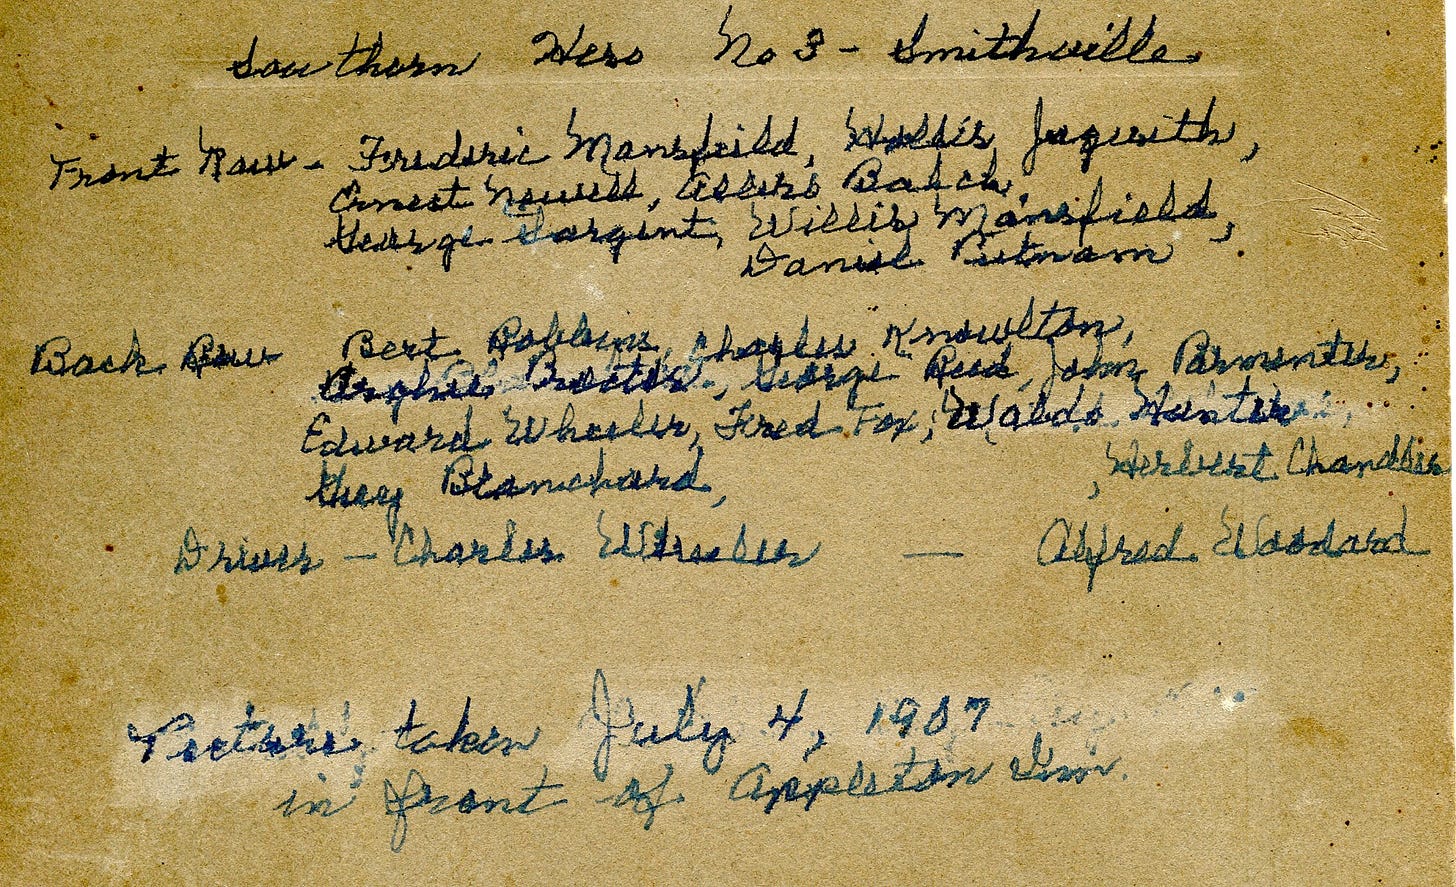 Southern Hero No 3 - Smithville
Front Row - Frederic Mansfeild, Hollis Jaquith,
Ernest Newell, Albert Balch,
George Sargent, Willis Mansfield,
Daniel Putnam
Back Row Bert Robbins, Charles Knowlton,
Archie Proctor, George Reed, John Parmenter,
Edward Wheeler, Fred Fox, Waldo
Guy Blanchard, Herbert Chandler
Driver - Charles Wheeler - Alfred Woodard
Picture taken July 4, 1907
in front of Appleton Inn.